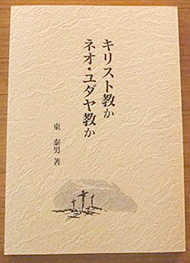 キリスト教か
ネオ・ユダヤ教か
東 泰男 著